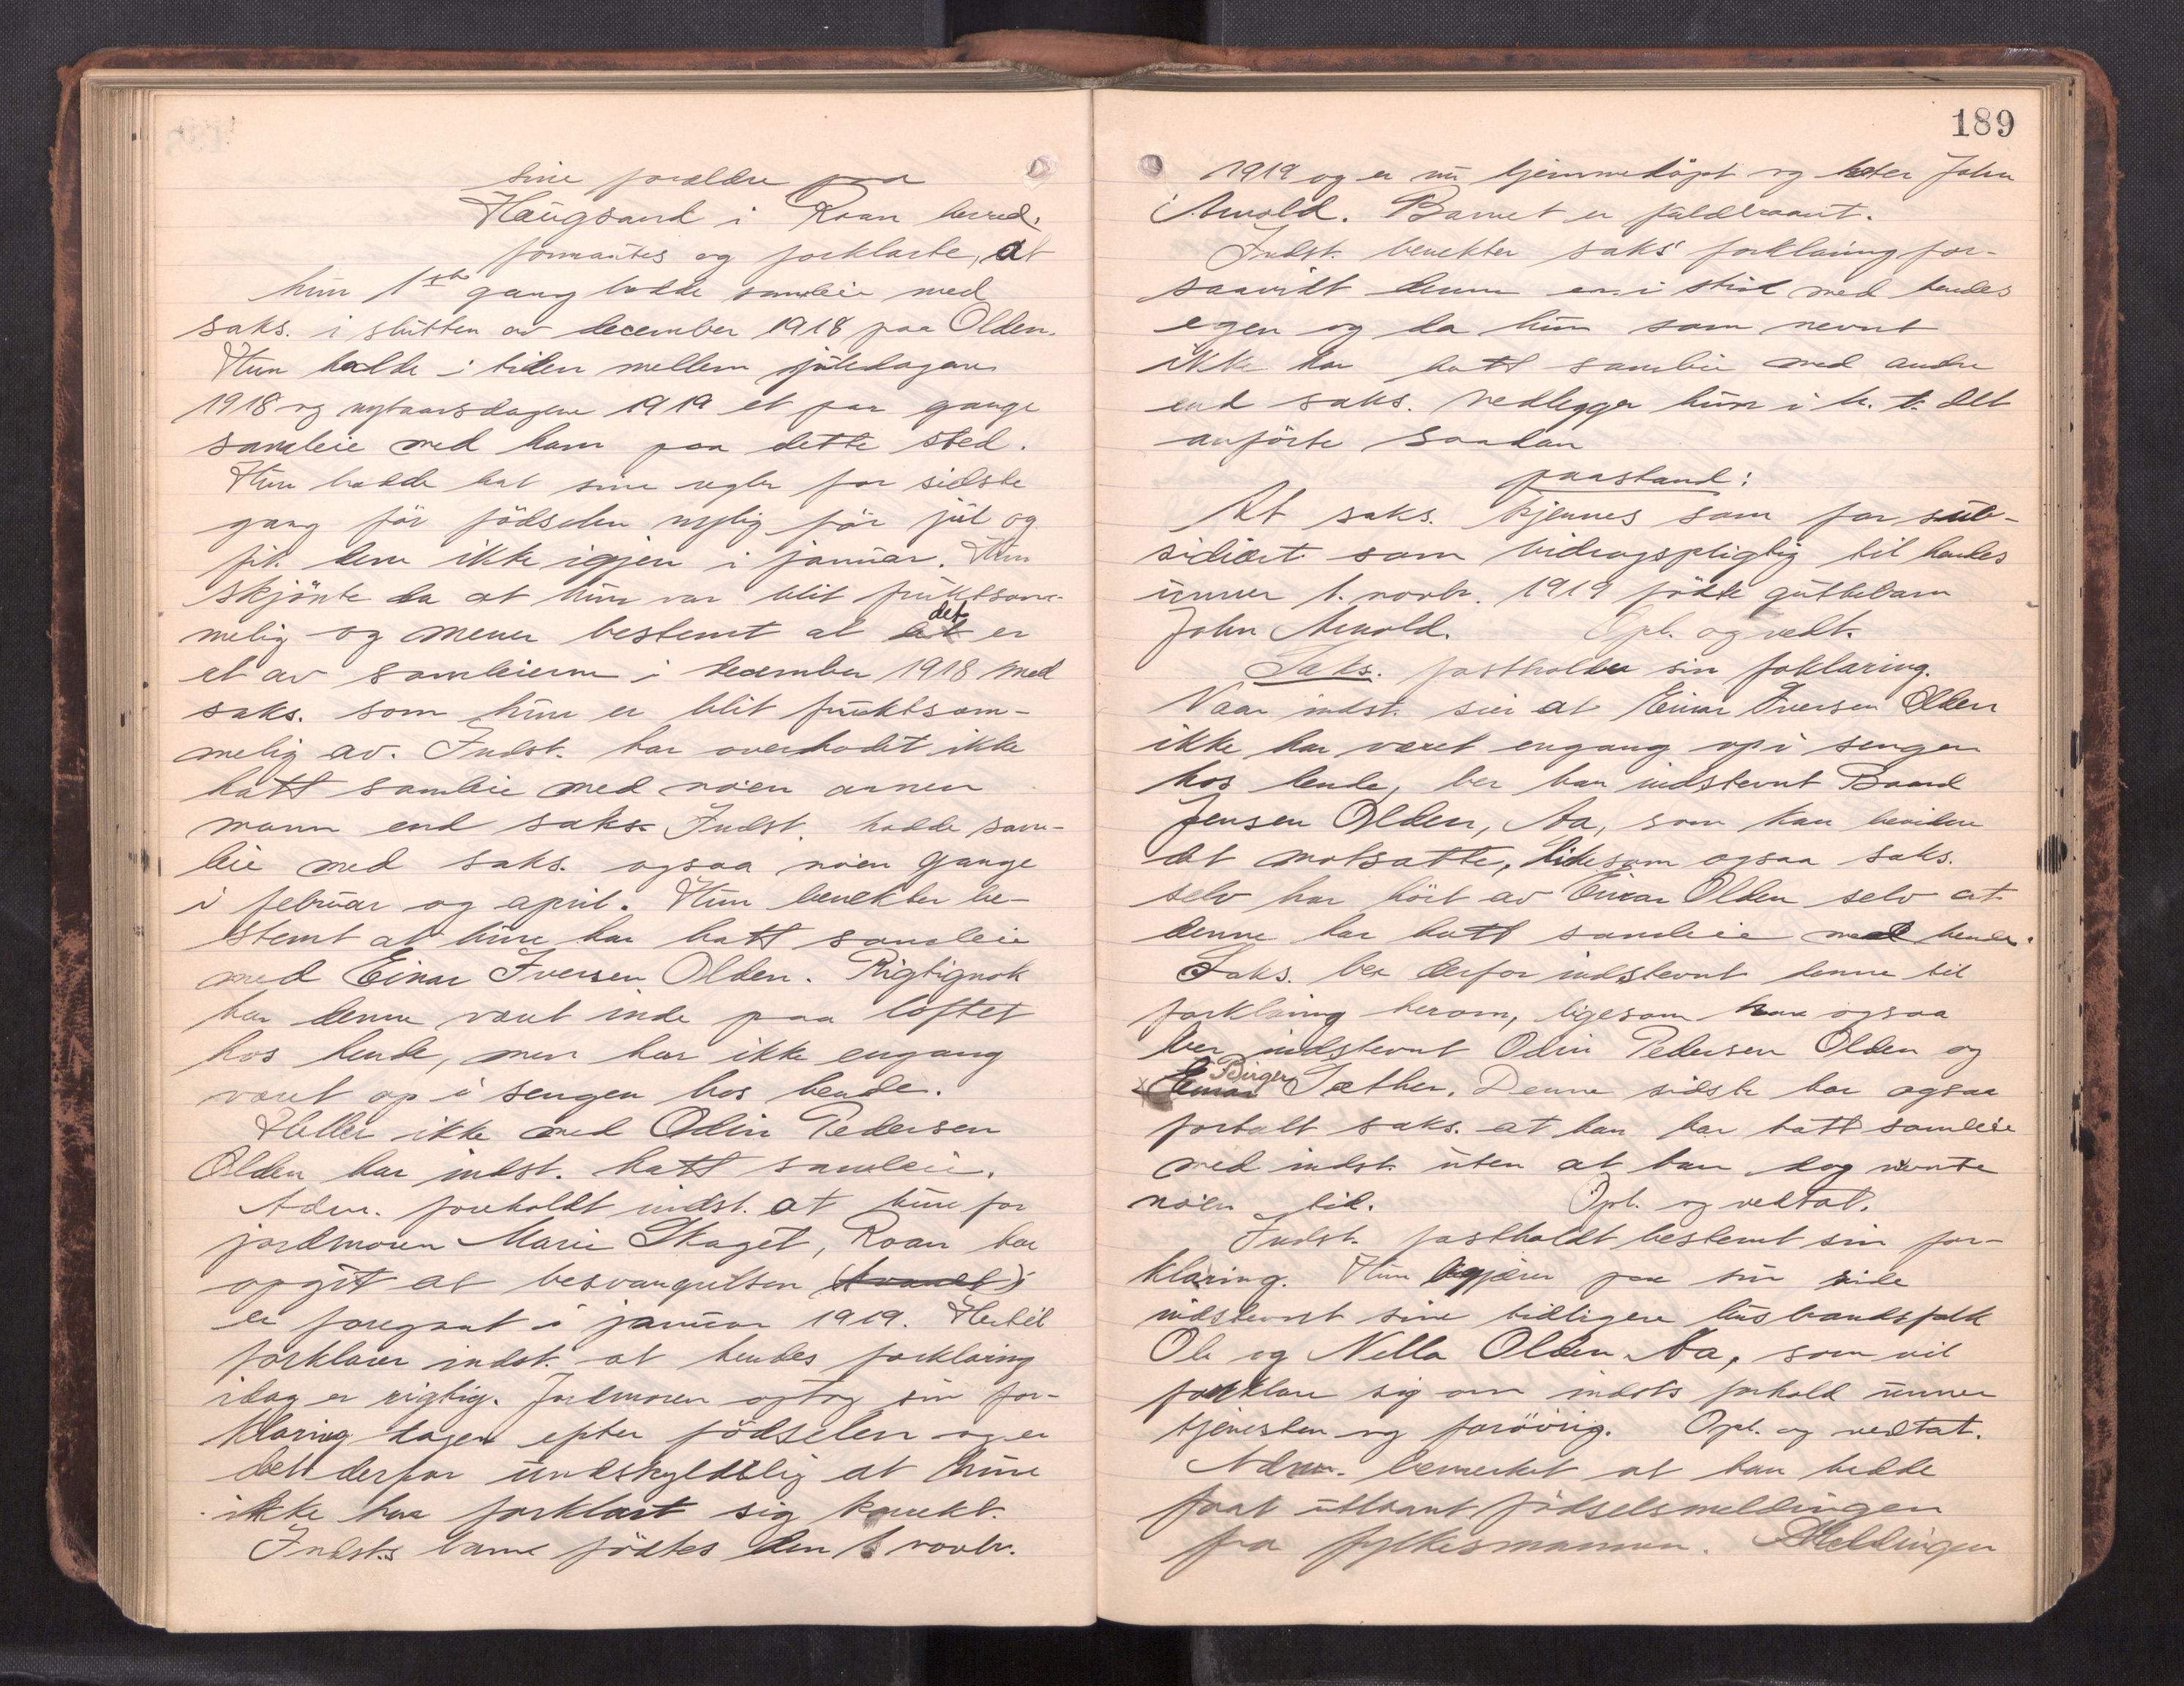 sine forældre paa
Haugsand i Roan herred.
formantes og forklarte, at
hun 1ste gang hadde samleie med
saks. i slutten av december 1918 paa Olden.
Hun hadde i tiden mellem juledagene
1918 og nytaarsdagene 1919 et par gange
samleie med ham paa dette sted.
Hun hadde hat sine regler for sidste
gang før fødselen nylig før jul og
fik dem ikke igjen i januar. Hun
skjønte da at hun var blit fruktsom-
melig og mener bestemt at det er
et av samleierne i december 1918 med
saks. som hun er blit fruktsom-
melig av. Indst. har overhodet ikke
hatt samleie med noen annen
mann end saks. Indst. hadde sam-
leie med saks. ogsaa noen gange
i februar og april. Hun benekter be-
stemt at hun har hatt samleie
med Einar Iversen Olden. Rigtignok
har denne været inde paa loftet
hos hende, men har ikke engang
været op i sengen hos hende.
Heller ikke med Odin Pedersen
Olden har indst. hatt samleie.
Adm. foreholdt indst. at hun for
jordmoren Marie Skaget, Roan har
opgit at besvangrelsen
er foregaat i januar 1919. Hertil
forklarer indst. at hendes forklaring
idag er rigtig. Jordmoren optog sin for-
klaring dagen efter fødselen og er
det derfor undskyldelig at hun
ikke har forklart sig korrekt.
Indst.s barn fødtes den 1 novbr.
189
1919 og er nu hjemmedøpt og heter John
Arnold. Barnet er fuldbaaret.
Indst. benekter saks' forklaring for-
saavidt denne er i strid med hendes
egen og da hun som nevnt
ikke har hatt samleie med andre
end saks. nedlegger hun i h. t. det
anførte saadan
paastand:
At saks. kjennes som far sub-
sidiært som bidragspligtig til hendes
unner 1. novbr. 1919 fødte guttebarn
John Arnold. Opl. og vedt.
Saks. fastholder sin foklaring.
Naar indst. sier at Einar Iversen Olden
ikke har været engang op i sengen
hos hende, ber han indstevnt Baard
Jensen Olden, Aa, som kan bevidne
det motsatte, likesom ogsaa saks.
selv har hørt av Einar Olden selv at
denne har hatt samleie med hende.
Saks. ber derfor indstevnt denne til
forklaring herom, ligesom han ogsaa
ber indstevnt Odin Pedersen Olden og
Einar Birger Sæther. Denne sidste har ogsaa
fortalt saks. at han har hatt samleie
med indst. uten at han dog nevnte
noen tid. Opl. og vedtat.
Indst. fastholdt bestemt sin for-
klaring. Hun begjærer paa sin side
indstevnt sine tidligere husbandsfolk
Ole og Nella Olden Aa, som vil
forklare sig om indsts forhold unner
tjenesten og forøvrig. Opl. og vedtat.
Adm. bemerket at han hadde
faat utlaant fødselsmeldingen
fra fylkesmannen. Meldingen